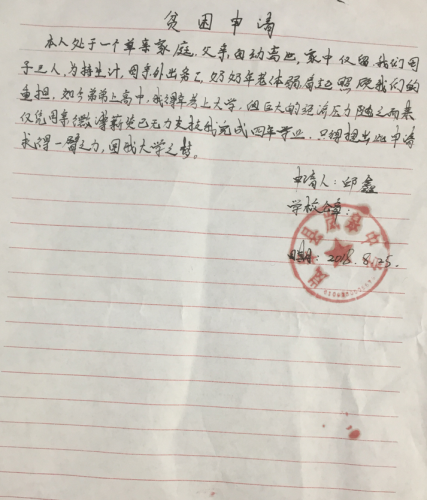 贫困申请
本人处于一个单亲家庭，父亲自幼离世，家中仅留我们母
子三人，为持生计，母亲外出务工，奶奶年老体弱肩起照顾我们的
重担，如今弟弟上高中，我得幸考上大学，但巨大的经济压力随之而来
仅凭母亲微薄薪资已无力支持我完成四年学业，只得提出此申请
求得一臂之力，圆我大学之梦。
申请人：邱鑫
学校公章：
日期：2018.8.25.